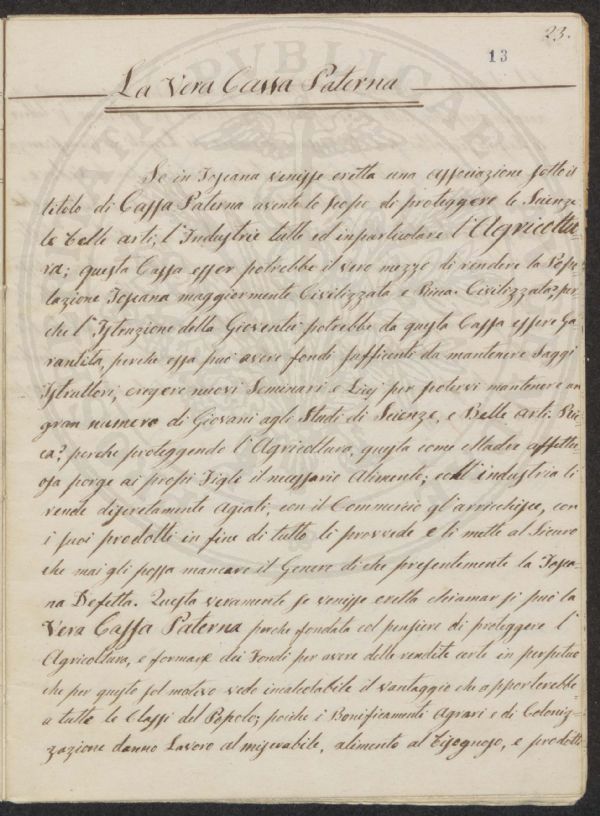 23.
13
La Vera Cassa Paterna
Se in Toscana venisse eretta una associazione sotto il
titolo di Cassa Paterna avente lo scopo di proteggere le Scienze
le belle arti, l'Industrie tutte ed in particolare l'Agricoltu-
ra; questa Cassa esser potrebbe il vero mezzo di rendere la Popo-
lazione Toscana maggiormente Civilizzata e Ricca. Civilizzata? per-
che l'Istruzione della Gioventù potrebbe da questa Cassa essere Ga-
rantita, perche essa può avere fondi sufficenti da mantenere Saggi
Istruttori, eregere nuovi Seminari e Licej per potervi mantenere un
gran numero di Giovani agli Studi di Scienze, e Belle arti. Ric-
ca? perche proteggendo l'Agricoltura, questa come Madre affettu-
osa porge ai propri Figli il necessario Alimento; coll'industria li
rende discretamente Agiati, con il Commercio gl'arricchisce, con
i suoi prodotti in fine di tutto li provvede e li mette al Sicuro
che mai gli possa mancare il Genere di che presentemente la Tosca-
na Difetta. Questa veramente se venisse eretta chiamar si può la
Vera Cassa Paterna perche fondata col pensiere di proteggere l'
Agricoltura, e formare dei Fondi per avere delle rendite certe in perpetuo
che per questo sol motivo vedo incalcolabile il vantaggio che apporterebbe
a tutte le Classi del Popolo; poiche i Bonificamenti Agrari e di Coloniz-
zazione danno Lavoro al miserabile, alimento al bisognoso, e prodotti